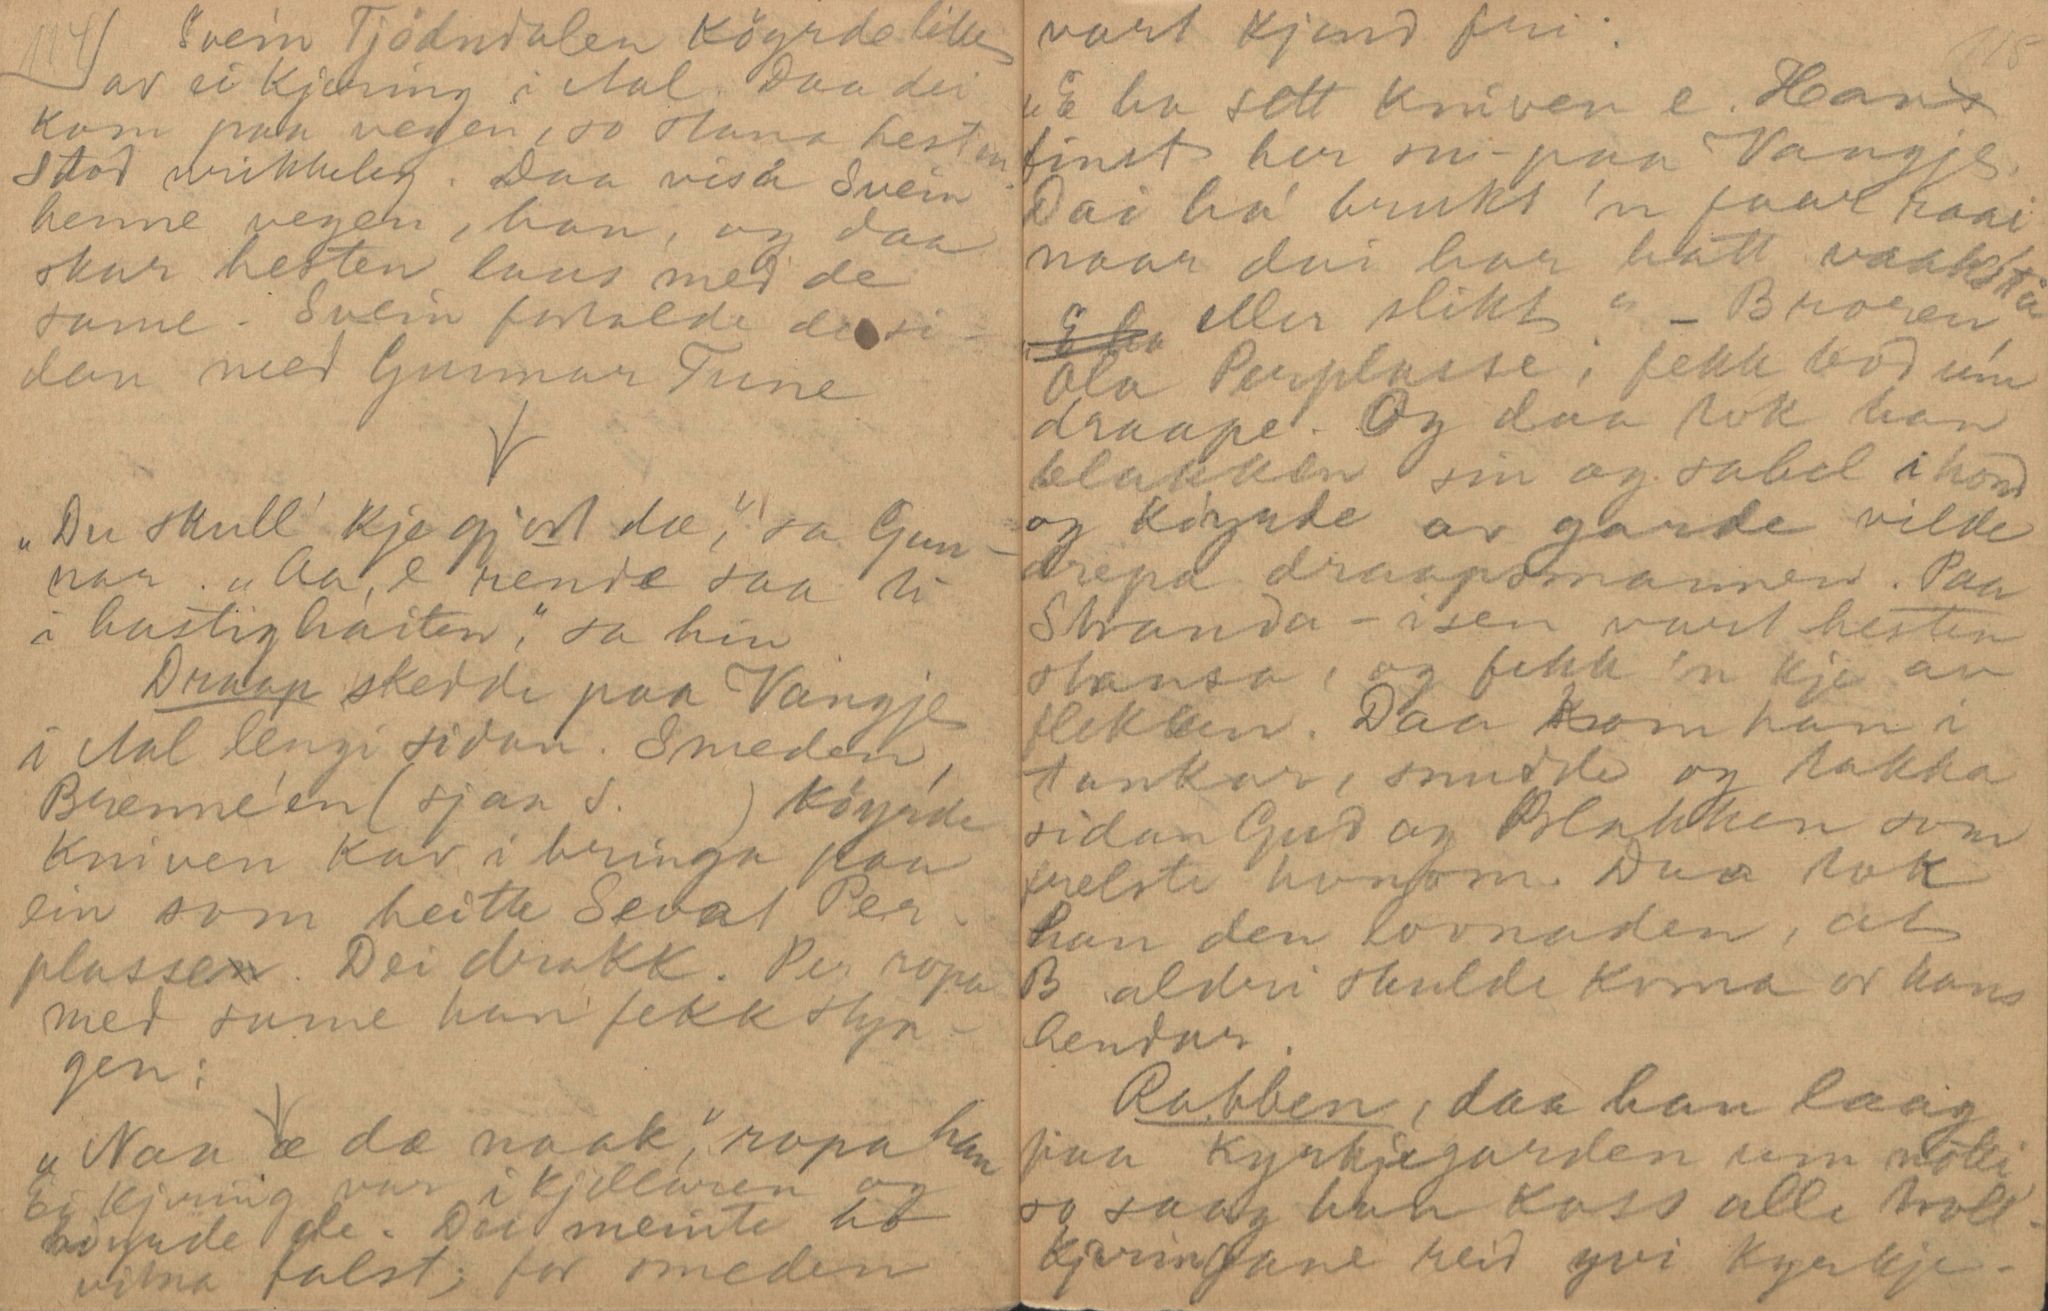 114
Svein Tjödndalen köyrde liket
av ei kjæring i Aal. Daa dei
kom paa vegen, so stana hesten.
Stod urikkeleg. Daa visa Svein
henne vegen, han, og daa
skar hesten laus med de
same. Svein fortalde de si-
dan med Gunnar Tune
"Du skull' kje gjort dæ," sa Gun-
nar. "Aa, e rende saa ti
i hastighaiten," sa hin
Draap skedde paa Vangje
i Aal lengi sidan. Smeden,
Brenne'en (sjaa s.      ) köyrde
kniven kav i bringa paa
ein som heitte Sevat Per-
plassen. Dei drakk. Per ropa
med same han fekk styn-
gen:
"Naa æ dæ naak," ropa han
Ei kjering var i kjellaren og
höyrde de. Dei meinte ho
vitna falst; for smeden
115
vart kjend fri.
"E ha sett kniven e. Han
finst her su-paa Vangje.
Dai ha' brukt 'n faar raai
naar dai har hatt vaaksta
eller slikt" – Broren,
Ola Perplasse, fekk bod um
draape. Og daa tok han
blakken sin og sabel i hond
og köyrde av garde vilde
drepa draapsmannen. Paa
Stranda-isen vart hesten
stansa, og fekk 'n kje av
flekken. Daa kom han i
tankar, snudde og takka
sidan Gud og Blakken som
frelste honom. Daa tok
han den lovnaden, at
B aldri skulde koma or hans
hendar.
Rabben, daa han laag
paa kyrkjegarden um nötti
so saag han koss alle troll-
kjeringane reid yvi kyrkje-